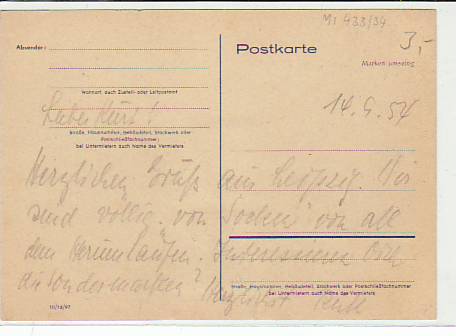 Mi 433/34
3,-
Absender:
Postkarte
Marken umseitig
Wohnort, auch Zustell- oder Leitpostamt
14. 9. 54
Lieber Kurt!
Straße, Hausnummer, Gebäudeteil, Stockwerk oder
Postschließfachnummer;
bei Untermietern auch Name des Vermieters
Herzlichen Gruß aus Leipzig. Wir
sind völlig von Socken von all
dem Herumlaufen. Interessieren Dich
die Sondermarken? Herzlichst
Straße, Hausnummer, Gebäudeteil, Stockwerk oder Postschließfachnummer
bei Untermietern auch Name des Vermieters